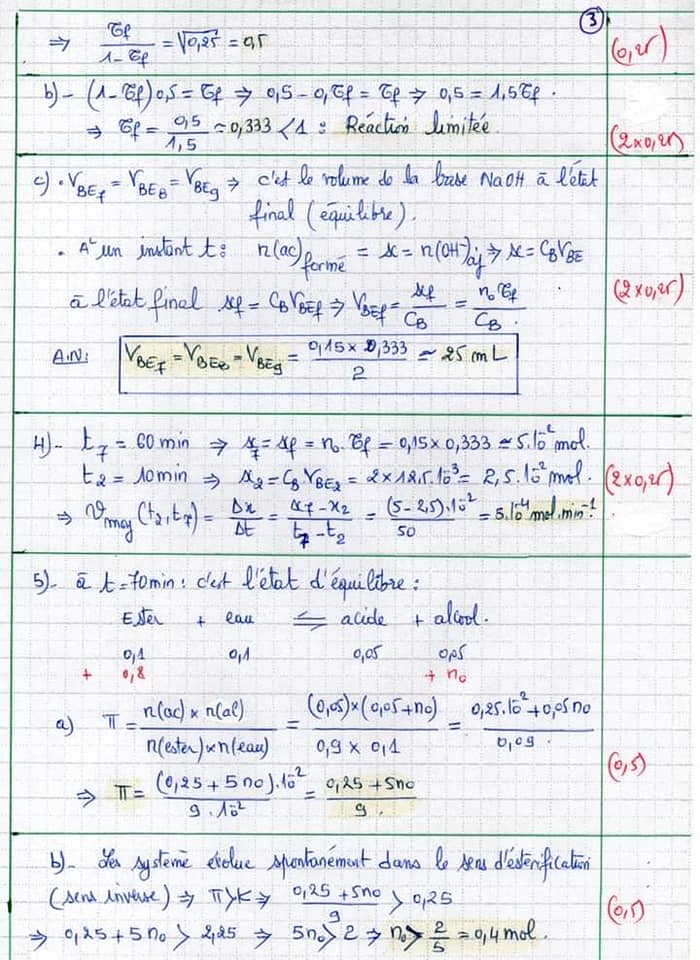 3
⇒ τf / 1 - τf = √0,25 = 0,5 (0,25)
b)- (1-τf)0,5 = τf ⇒ 0,5 - 0,τf = τf ⇒ 0,5 = 1,5τf.
⇒ τf = 0,5 / 1,5 ≃ 0,333 < 1 : Réaction limitée. (2x0,25)
c). VBE7 = VBE8 = VBE9 ⇒ c'est le volume de la base NaOH à l'état
final (équilibre).
. A un instant t: n(ac)formé = x = n(OH⁻)aj ⇒ x = CB VBE
à l'état final xf = CB VBEf ⇒ VBEf = xf / CB = n₀ τf / CB. (2x0,25)
A.N: VBE7 = VBE8 = VBE9 = 0,15 x 0,333 / 2 ≃ 25 mL
4)- t7 = 60 min ⇒ x7 = xf = n₀. τf = 0,15 x 0,333 ≃ 5.10⁻² mol.
t2 = 10 min ⇒ x2 = CB VBE2 = 2 x 12,5.10⁻³ = 2,5.10⁻² mol. (2x0,25)
⇒ Vmoy (t2, t7) = Δx / Δt = x7 - x2 / t7 - t2 = (5 - 2,5).10⁻² / 50 = 5.10⁻⁴ mol.min⁻¹.
5)- à t = 70 min : c'est l'état d'équilibre :
Ester + eau ⇋ acide + alcool.
0,1 0,1 0,05 0,05
+ 0,8 + n₀
a) π = n(ac) x n(al) / n(ester) x n(eau) = (0,05) x (0,05 + n₀) / 0,9 x 0,1 = 0,25.10⁻² + 0,05 n₀ / 0,09
⇒ π = (0,25 + 5 n₀).10⁻² / 9.10⁻² = 0,25 + 5n₀ / 9. (0,5)
b)- Les système évolue spontanément dans le sens d'estérification
(sens inverse) ⇒ π > K ⇒ 0,25 + 5n₀ / 9 > 0,25 (0,5)
⇒ 0,25 + 5 n₀ > 2,25 ⇒ 5n₀ > 2 ⇒ n₀ > 2 / 5 = 0,4 mol.